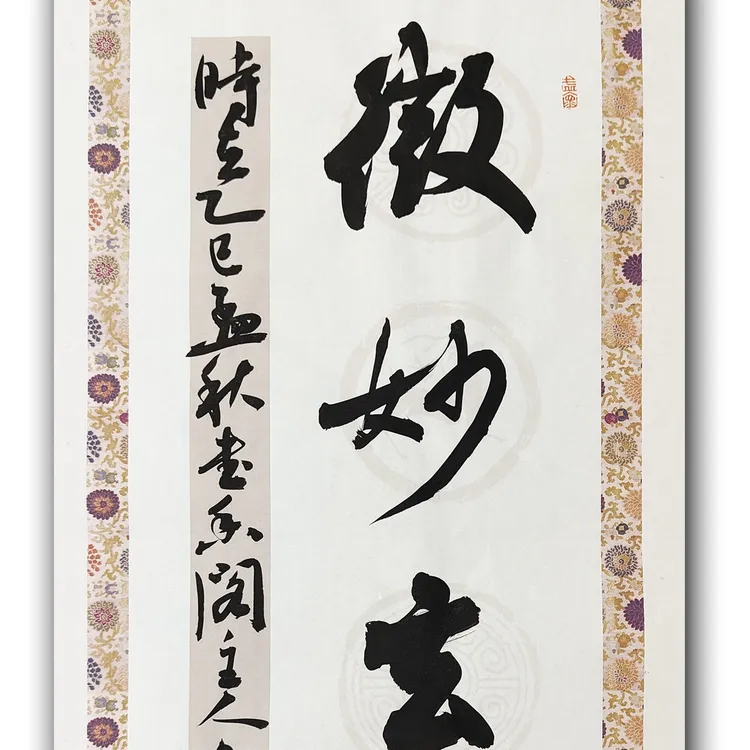 微妙玄
時在乙巳孟秋書香閣主人